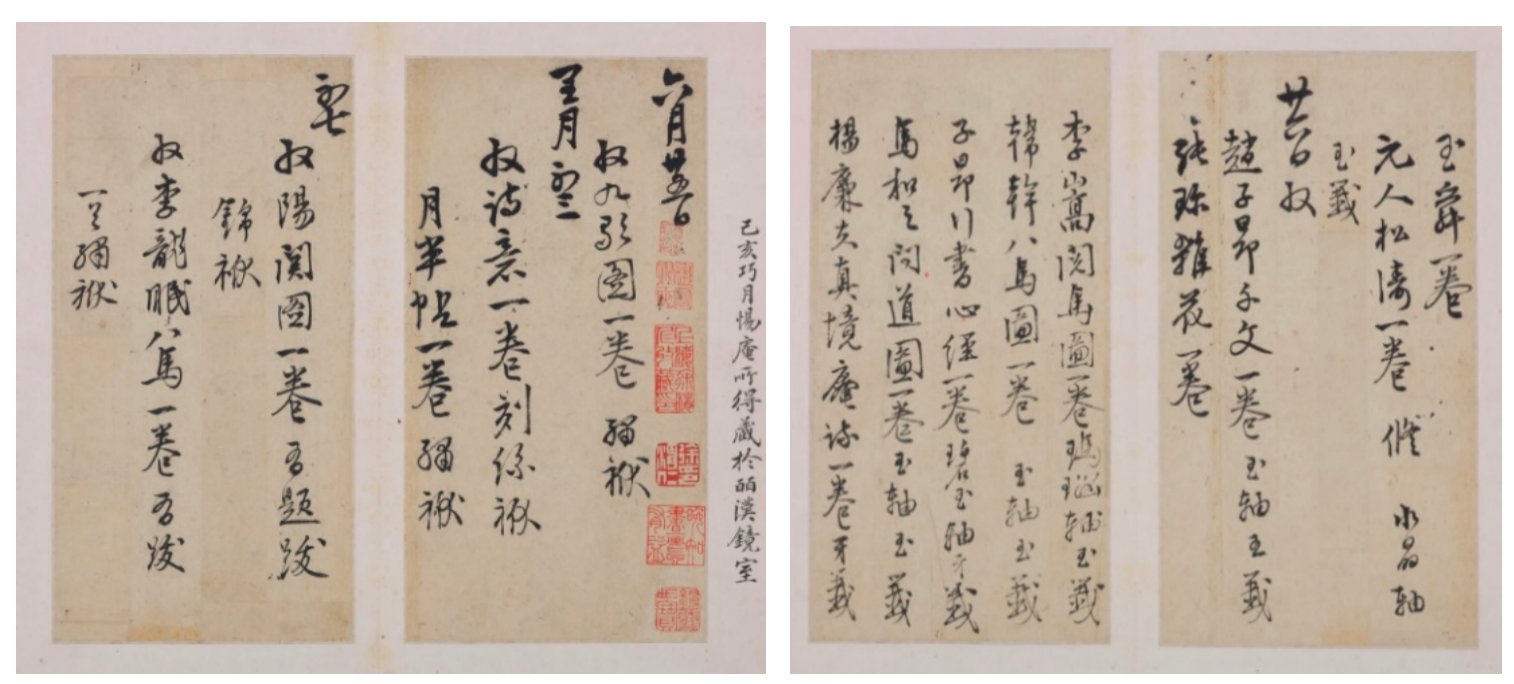 己亥巧月惕庵所得藏於皕漢鏡室
六月廿五日
收九歌图一卷 繡袱
閏月初三
收诗意一卷刻丝袱
月半帖一卷 繡袱
初七
收陽関图一卷 有題跋
錦袱
收李龍眠八馬一卷 有跋
繡袱
一卷
元人松濤一卷 修 水晶軸
玉籤
廿六日收
趙子昂千文一卷玉軸玉籤
張珎雜花一卷
李嵩閱馬圖一卷瑪瑙軸玉籤
韓幹八馬圖一卷 玉軸玉籤
子昂行書心經一卷碧玉軸牙籤
馬和之問道圖一卷玉軸玉籤
楊廉夫真境庵詩一卷牙籤